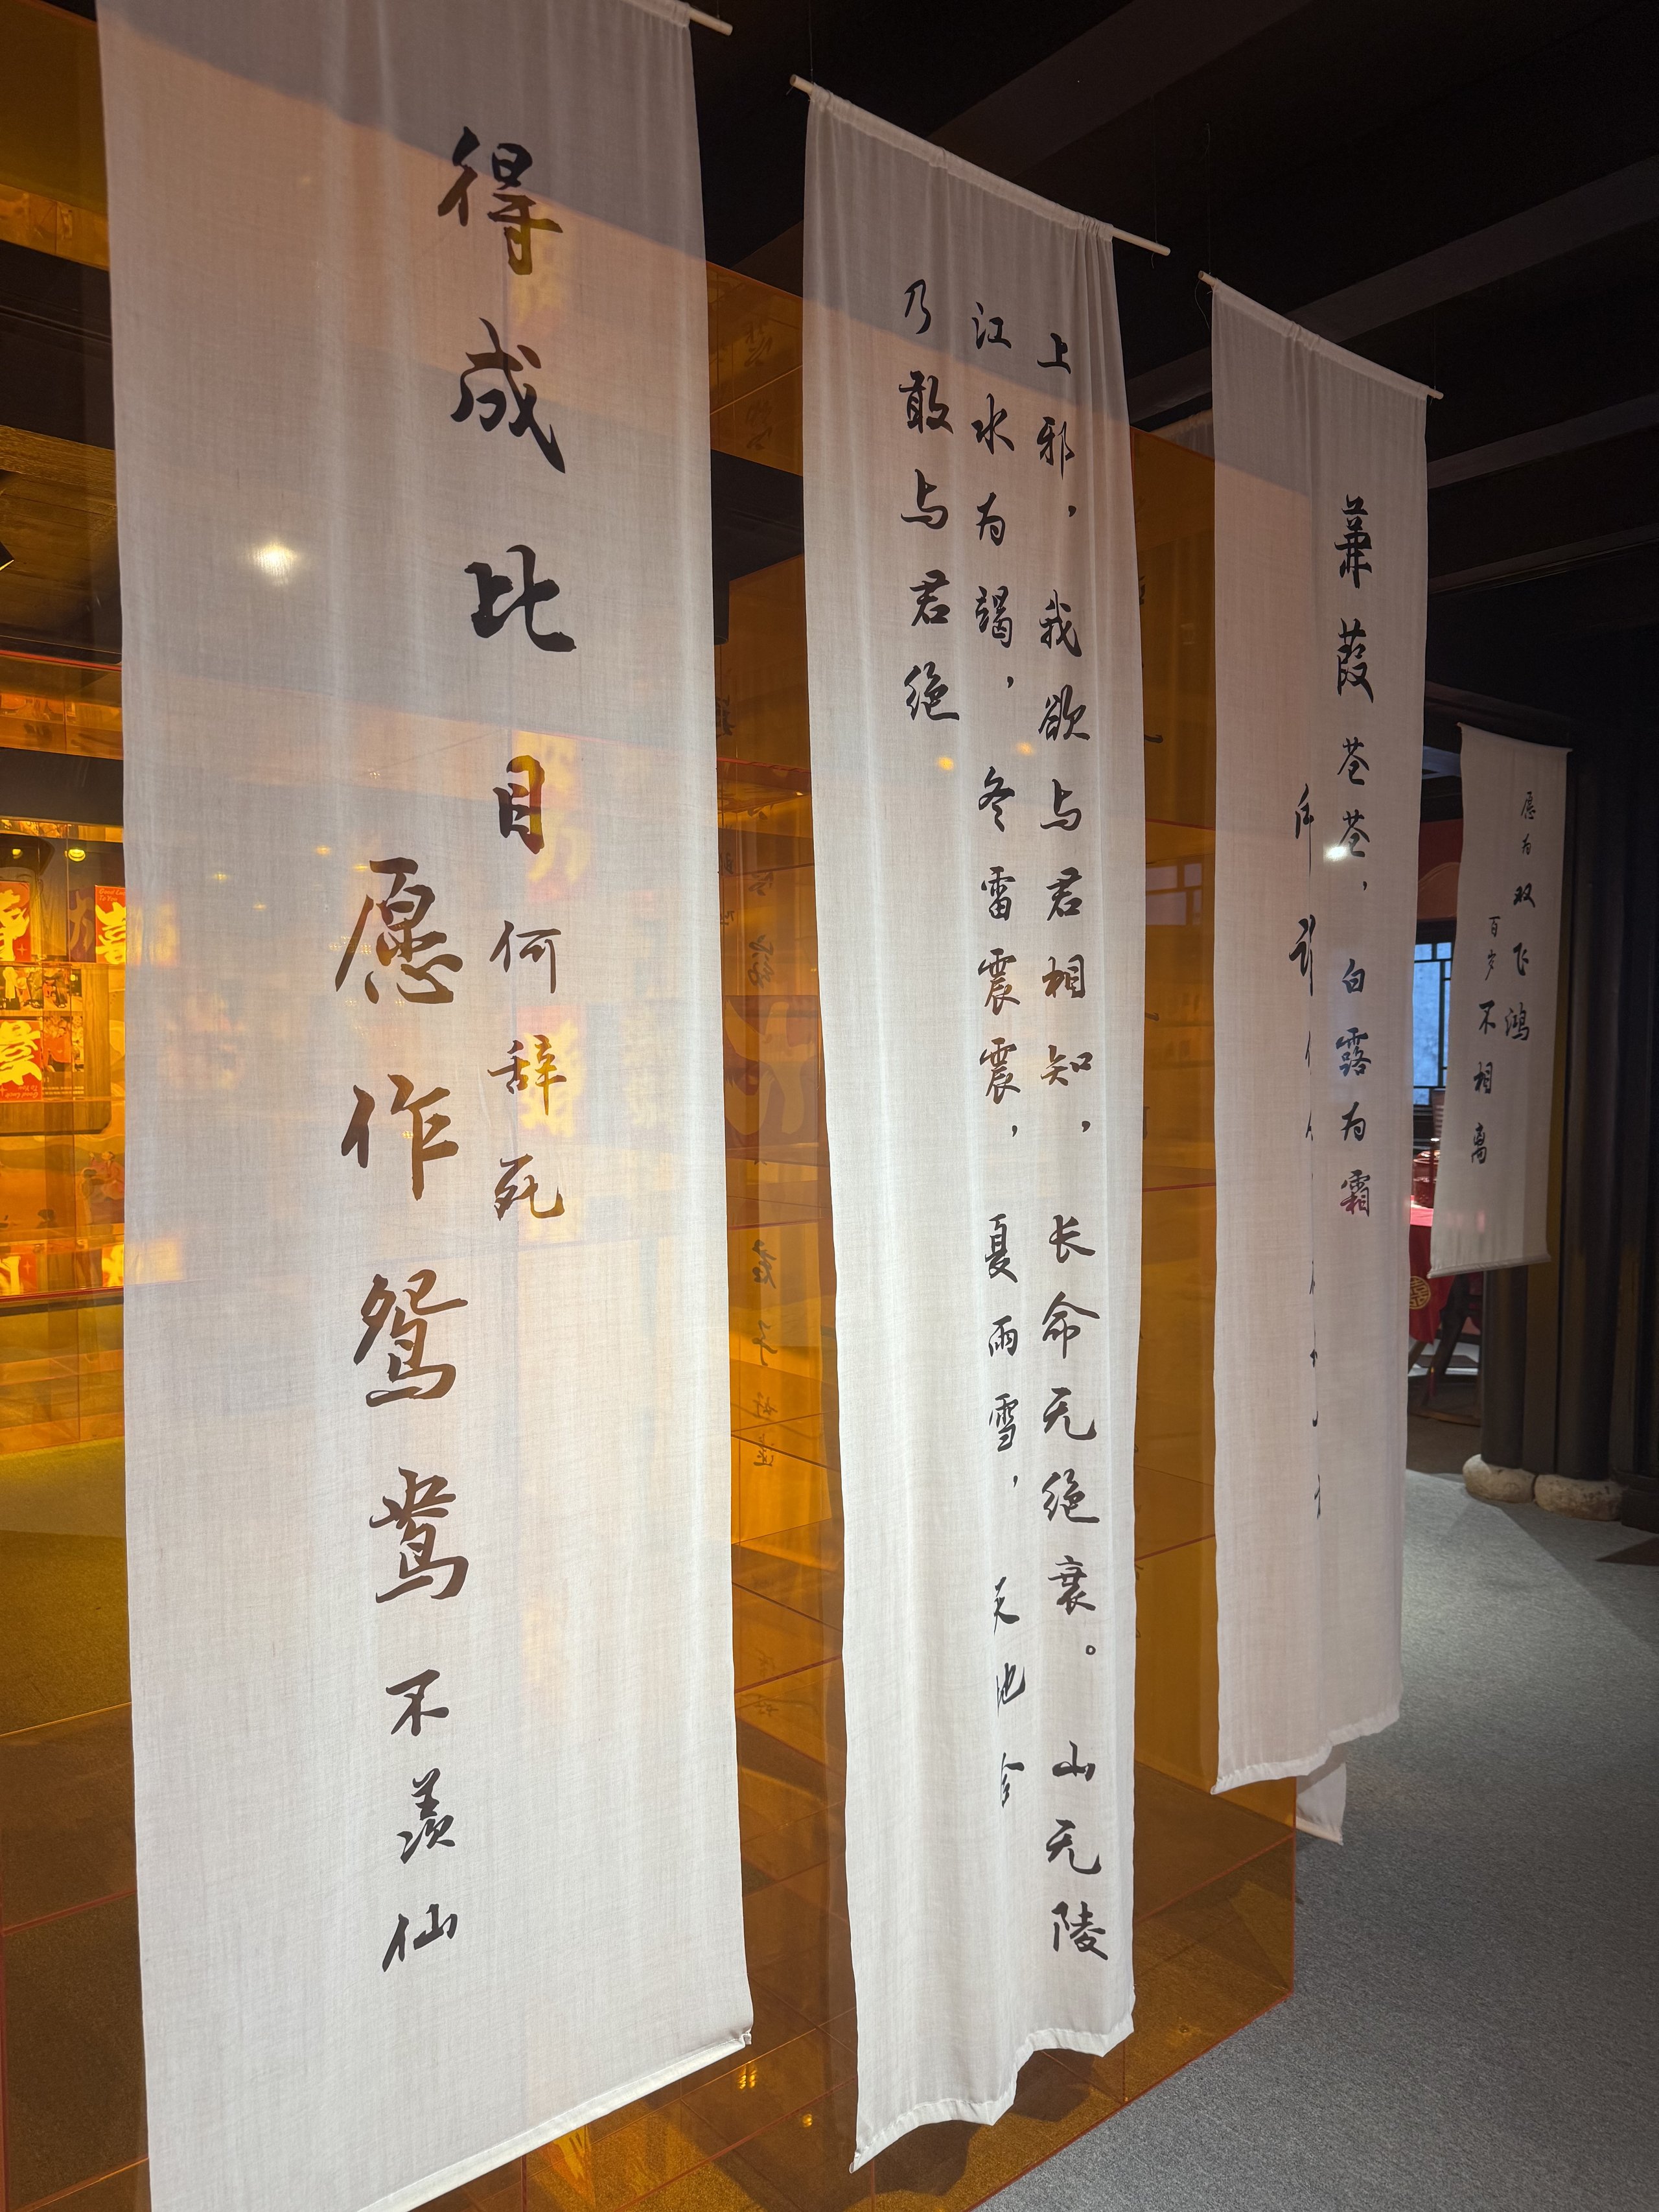 得成比目何辞死
愿作鸳鸯不羡仙
上邪，我欲与君相知，长命无绝衰。山无陵
江水为竭，冬雷震震，夏雨雪，天地合
乃敢与君绝
蒹葭苍苍，白露为霜
愿为双飞鸿
百岁不相离
喜